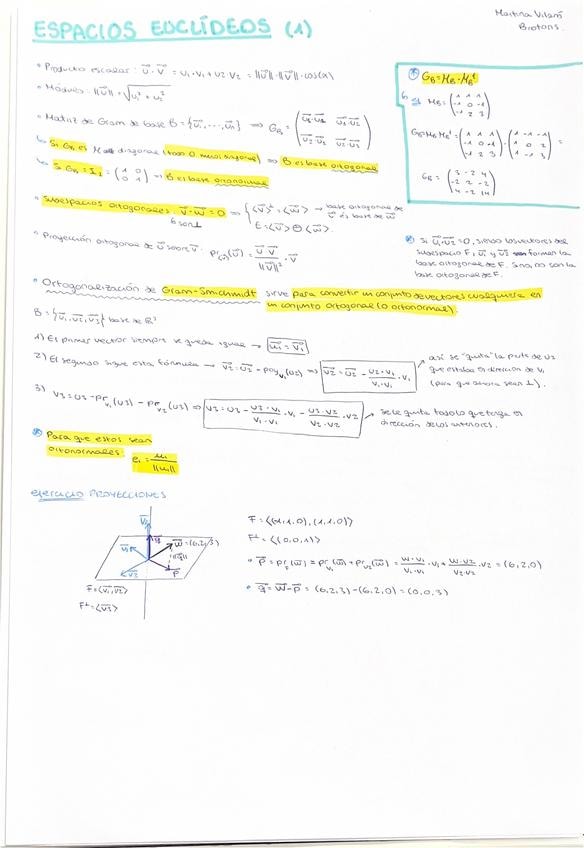 Martina Vilam
Brotons.
ESPACIOS EUCLÍDEOS (1)
• Producto escalar: u⃗ · v⃗ = u₁·v₁ + u₂·v₂ = ||u⃗||·||v⃗||·cos(α)
• Módulo: ||u⃗|| = √(u₁² + u₂²)
• Matriz de Gram de base B = {u₁, ..., uₙ} ⇒ G_B = (u₁·u₁ u₁·u₂
u₂·u₁ u₂·u₂)
↳ Si G_B es diagonal (todo 0 menos diagonal) ⇒ B es base ortogonal
↳ Si G_B = I₂ = (1 0
0 1) ⇒ B es base ortonormal
• Subespacios ortogonales: v⃗·w⃗ = 0 ⇒ { ⟨v⃗⟩ = ⟨w⃗⟩ → base ortogonal de
v⃗ es base de w⃗
↳ son ⊥
E = ⟨v⃗⟩ ⊕ ⟨w⃗⟩.
• Proyección ortogonal de u⃗ sobre v⃗: pr₍ᵥ₎(u⃗) = (u⃗·v⃗ / ||v⃗||²) · v⃗
G_B = M_B · M_Bᵗ
↳ Si M_B = (1 1 1
-1 0 -1
-1 2 3)
G_B = M_B M_Bᵗ = (1 1 1
-1 0 -1
-1 2 3) · (1 -1 -1
1 0 2
1 -1 3) =
G_B = (3 -2 4
-2 2 -2
4 -2 14)
Si u₁·u₂ = 0, siendo los vectores del
subespacio F, u₁ y u₂ forman la
base ortogonal de F. Si no, no son la
base ortogonal de F.
• Ortogonalización de Gram-Smichmidt sirve para convertir un conjunto de vectores cualquiera en
un conjunto ortogonal (o ortonormal).
B = {v₁, v₂, v₃} base de R³
1) El primer vector siempre se queda igual → u₁ = v₁
2) El segundo sigue esta fórmula → v₂ = u₂ - proy_v₁(u₂) ⇒ v₂ = u₂ - (u₂·v₁ / v₁·v₁) · v₁
así se "quita" la parte de u₂
que estaba en dirección de v₁
(para que ahora sean ⊥).
3) v₃ = u₃ - pr_v₁(u₃) - pr_v₂(u₃) ⇒ v₃ = u₃ - (u₃·v₁ / v₁·v₁) · v₁ - (u₃·v₂ / v₂·v₂) · v₂
se le quita todo lo que tenga en
dirección de los anteriores.
Para que estos sean
ortonormales: eᵢ = uᵢ / ||uᵢ||
ejercicio PROYECCIONES
v₃
v₁
v₂
q⃗
w⃗ = (6,2,3)
"q⃗"
p⃗
F = ⟨v₁, v₂⟩
F⊥ = ⟨v₃⟩
F = ⟨(-1,1,0), (1,1,0)⟩
F⊥ = ⟨(0,0,1)⟩
• p⃗ = pr_F(w⃗) = pr_v₁(w⃗) + pr_v₂(w⃗) = (w·v₁ / v₁·v₁) · v₁ + (w·v₂ / v₂·v₂) · v₂ = (6,2,0)
• q⃗ = w⃗ - p⃗ = (6,2,3) - (6,2,0) = (0,0,3)